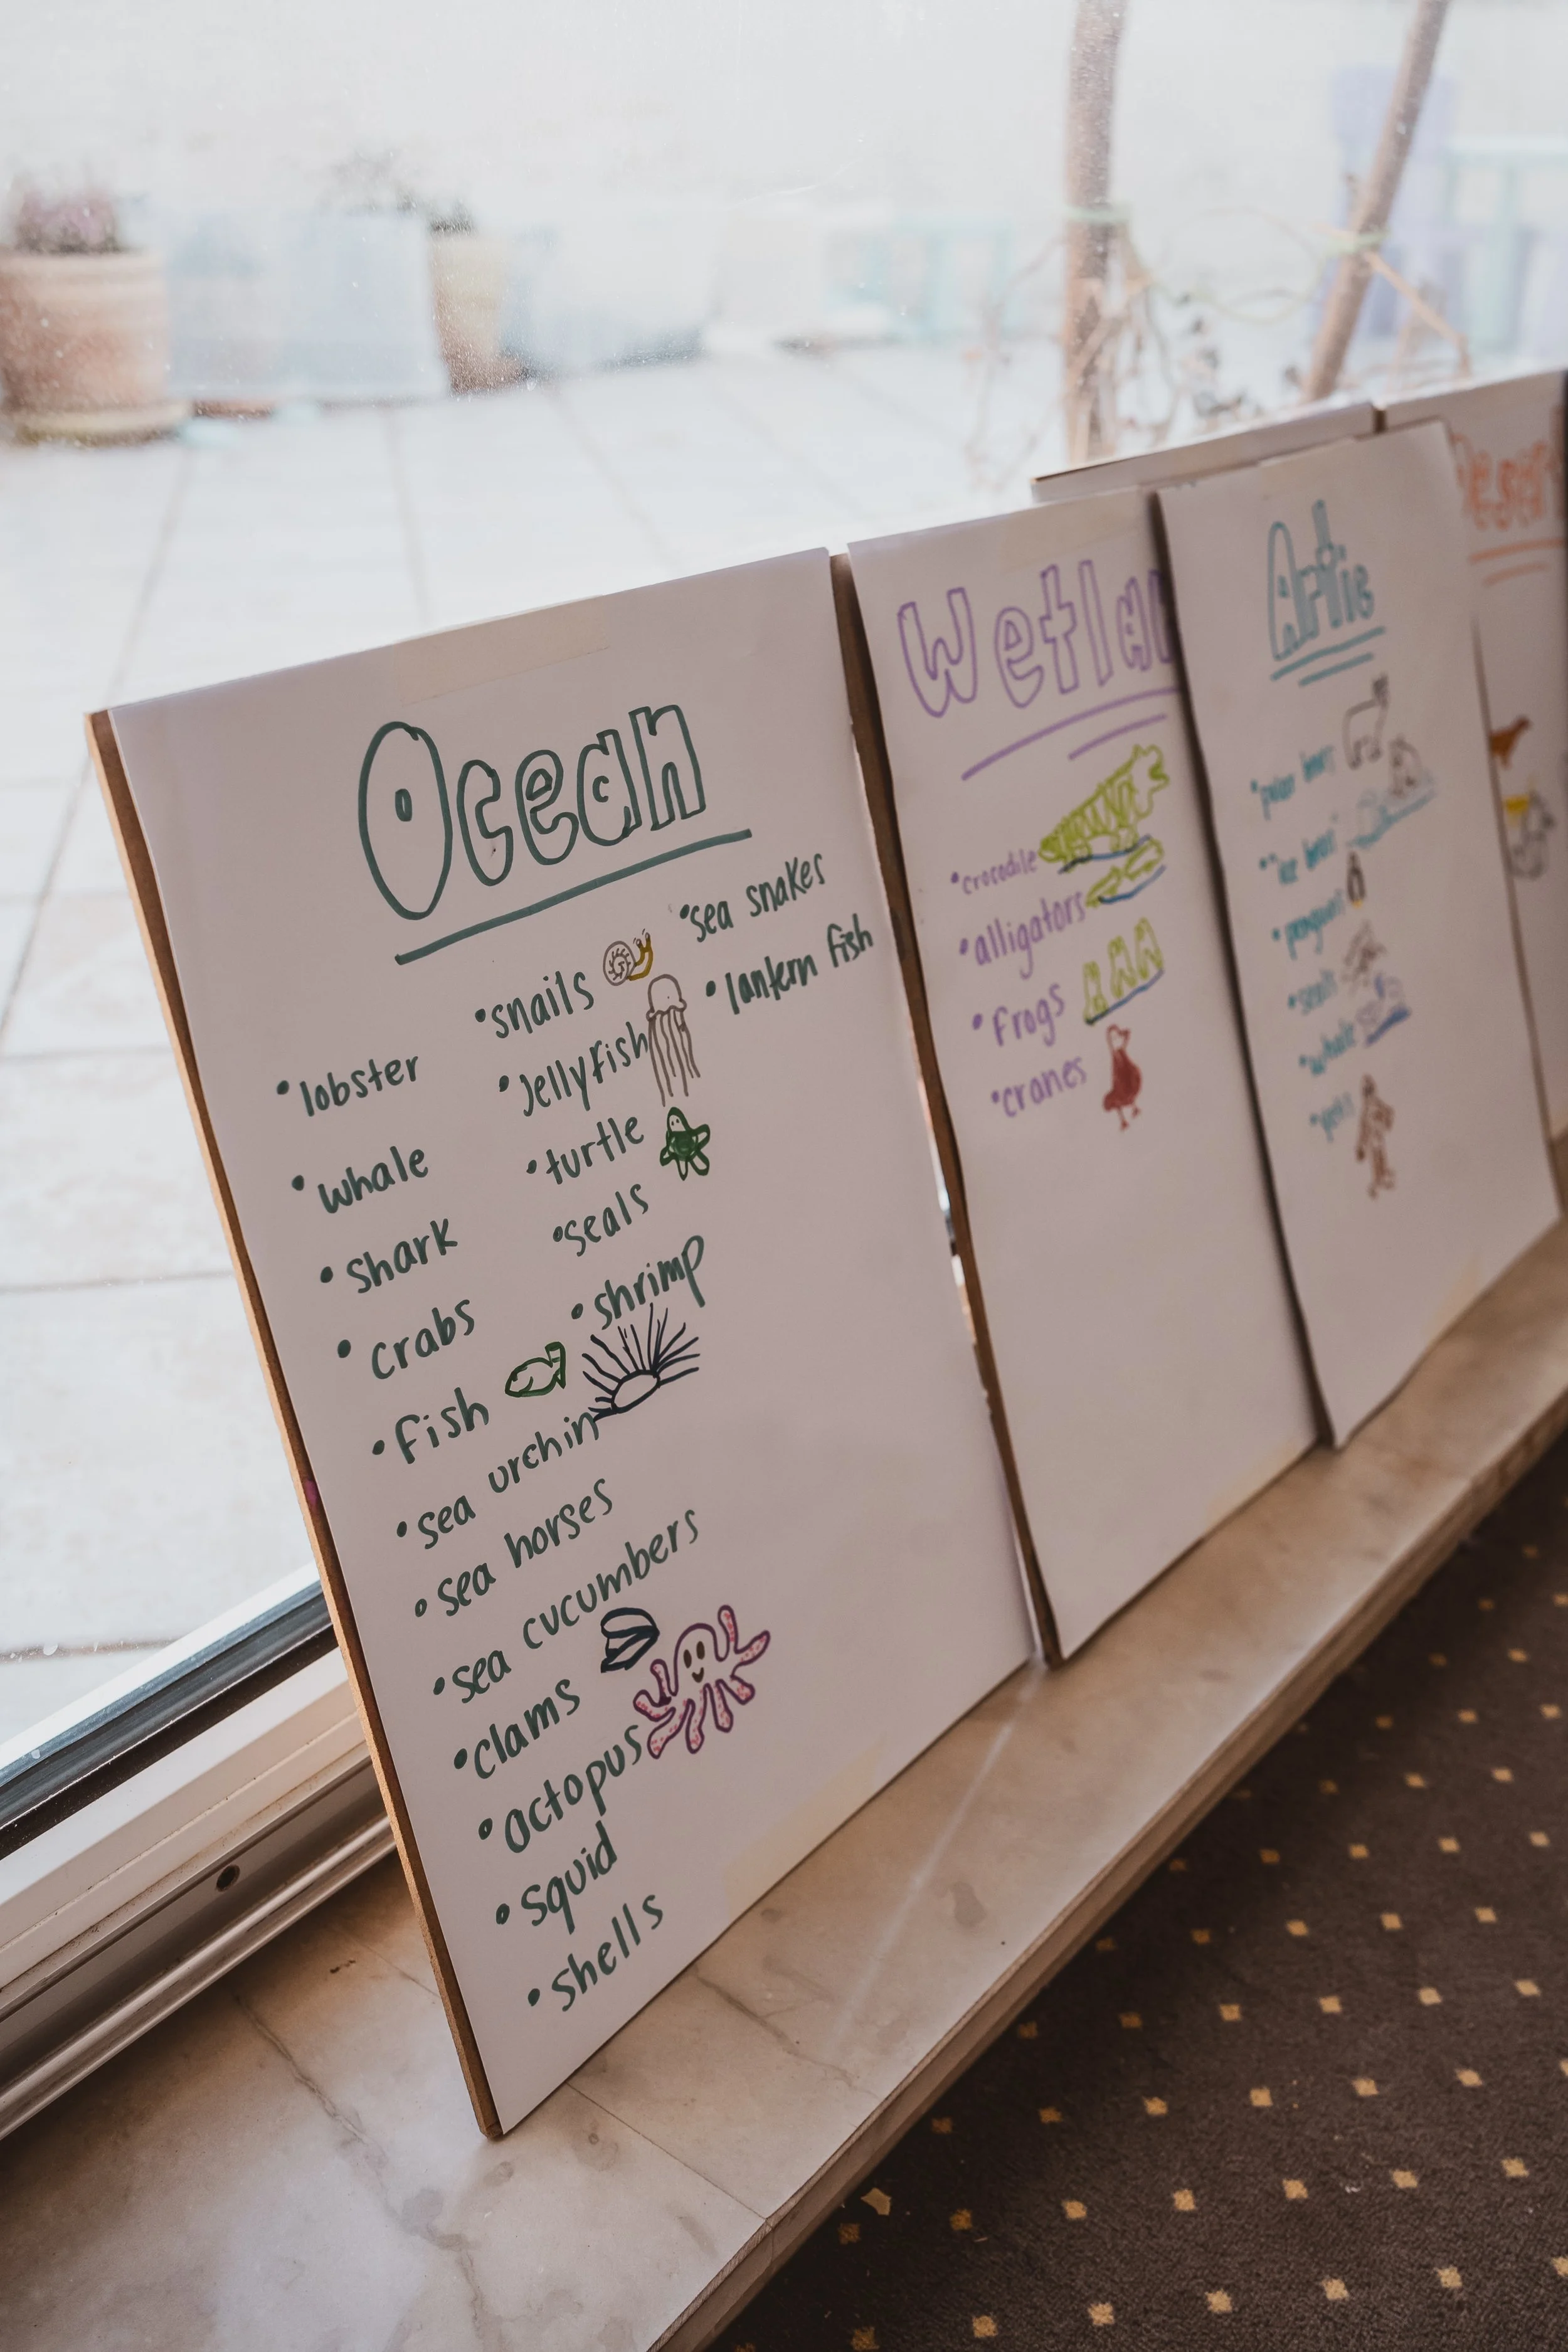 Ocean
• lobster
• whale
• Shark
• crabs
• fish
• sea urchin
• sea horses
• sea cucumbers
• clams
• octopus
• squid
• shells
• snails
• Jellyfish
• turtle
• seals
• shrimp
• sea snakes
• lantern fish
Wetlan
• crocodile
• alligators
• Frogs
• cranes
Artic
• polar bear
• "ice bear"
• penguin
• seals
• whale
• yeti
Desert